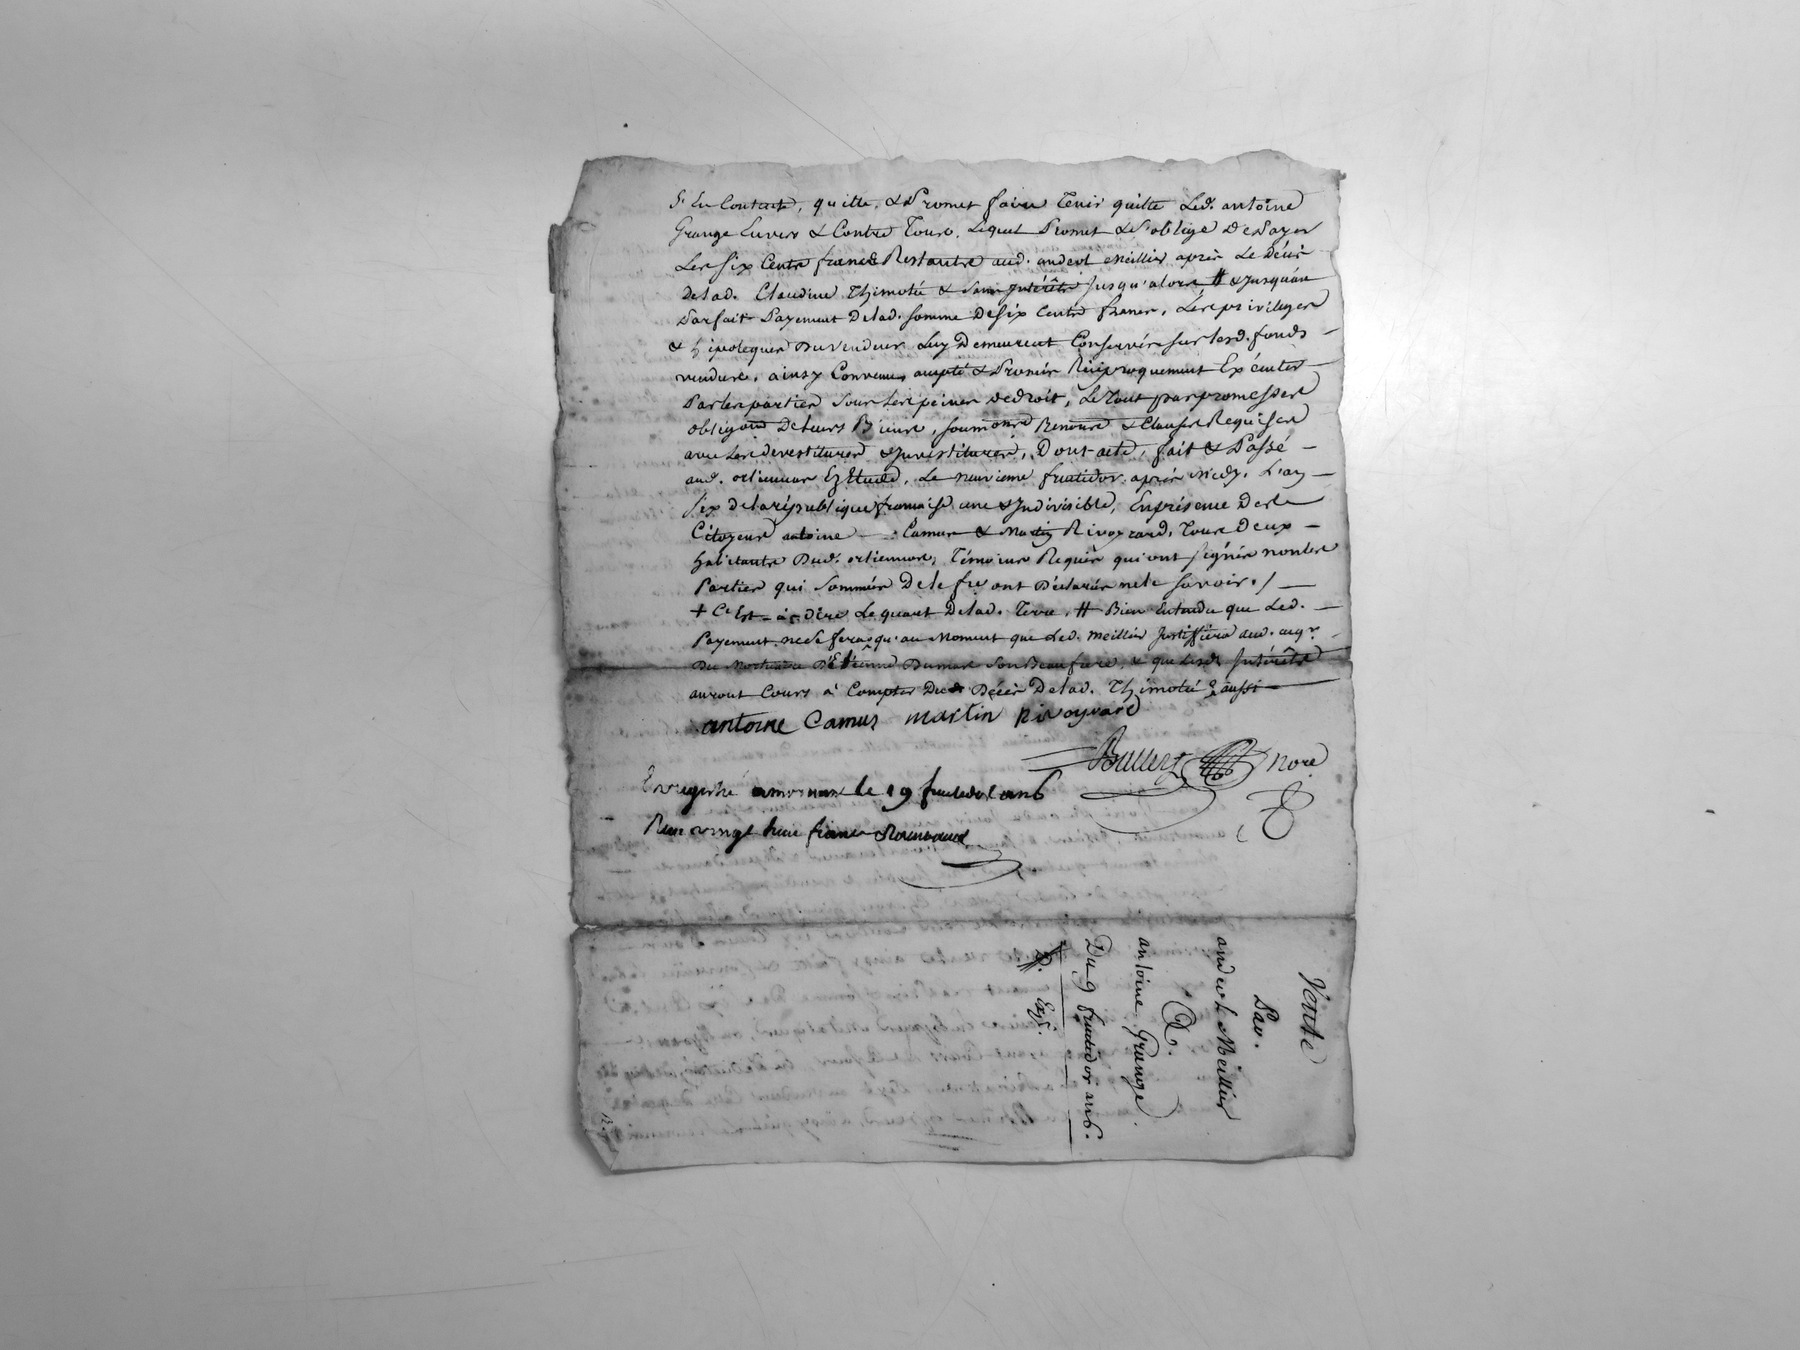 s'en contente, quitte, & Promet faire Tenir quitte Led. antoine
Grange Envers & Contre Tous. Lequel Promet & s'oblige De Payer
Les six Cents francs Restants aud. andeol Meillier après Le Décès
Delad. Claudine Thimoté & sans Intérêts Jusqu'alors # & Jusqu'au
Parfait Payement Delad. somme De six Cents francs, Les privileges
& hipoteques Du vendeur Luy Demeurent Conservés sur Lesd. fonds
vendus, ainsy Convenu, accepté & Promis Réciproquement Exécuter
Par les parties sous Les peines De droit, Le Tout par promesses
obligons De Leurs Biens, soumons Renons & Clauses Requises
avec Les devestitures & Investitures, Dont acte, fait & Passé
aud. orlienas Ez Etude, Le neuvieme fructidor après midy, L'an
six de la république francaise une & Indivisible, En présence Des
Citoyens antoine Camus & Martin Rivoyrard, Tous Deux
habitants Dud. orlienas, Témoins Requis qui ont signés non les
Parties qui sommées De le fre ont Déclarés ne le savoir ./
+ C'Est-à-dire Le quart Delad. Terre, # Bien Entendu que Led.
Payement ne se fera qu'au Moment que Led. Meillier Justiffiera aud. aqr.
Du Mortuaire D'Etienne Dumas son Beaufrere, & que Lesd. Intérêts
auront Cours à Compter Dud. Décès Delad. Thimoté aussi
antoine Camus Martin Rivoyrard
Nore.
Enregistré a mornant le 19 fructidor an 6
Recu vingt huit francs
Vente
Par.
andeol Meillier
A.
antoine Grange
Du 9 fructidor an 6.
Exp.